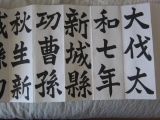 大伐太
和七年
新城縣
功曹孫
秋生新